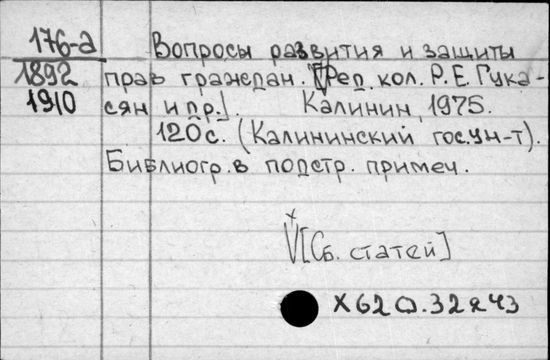 176-а Вопросы развития и защиты
1892 прав граждан. V[Ред. кол. Р. Е. Гука-
1910 сян и др.]. Калинин, 1975.
120 с. (Калининский гос. ун-т).
Библиогр. в подстр. примеч.
V[Сб. статей]
Х62о.32я43